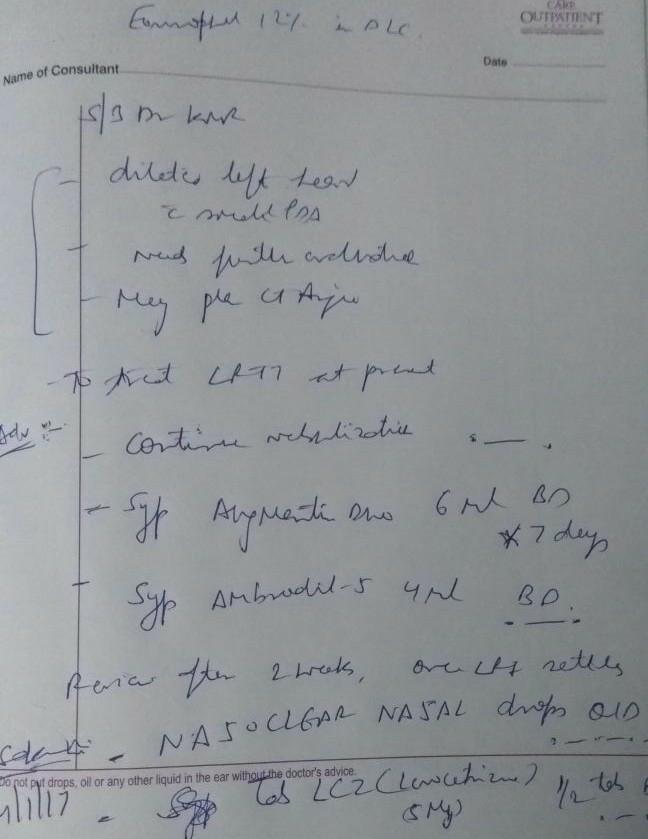 Eosinophil 12% in DLC.
CARE
OUTPATIENT
Date
Name of Consultant
S/B Dr KNR
- dilated left heart
c small PDA
- Needs further evaluation
- May plan CT Angio
- To treat LRTI at present
Adv :-
- Continue nebulization
- Syp Augmentin Duo 6 ml BD
x 7 days
- Syp Ambrodil-S 4 ml BD.
Review after 2 weeks, once LRTI settles
- NASOCLEAR NASAL drops QID
Do not put drops, oil or any other liquid in the ear without the doctor's advice.
1/17 - Tab LCZ (Levocetirizine) 1/2 tab
(5 Mg)